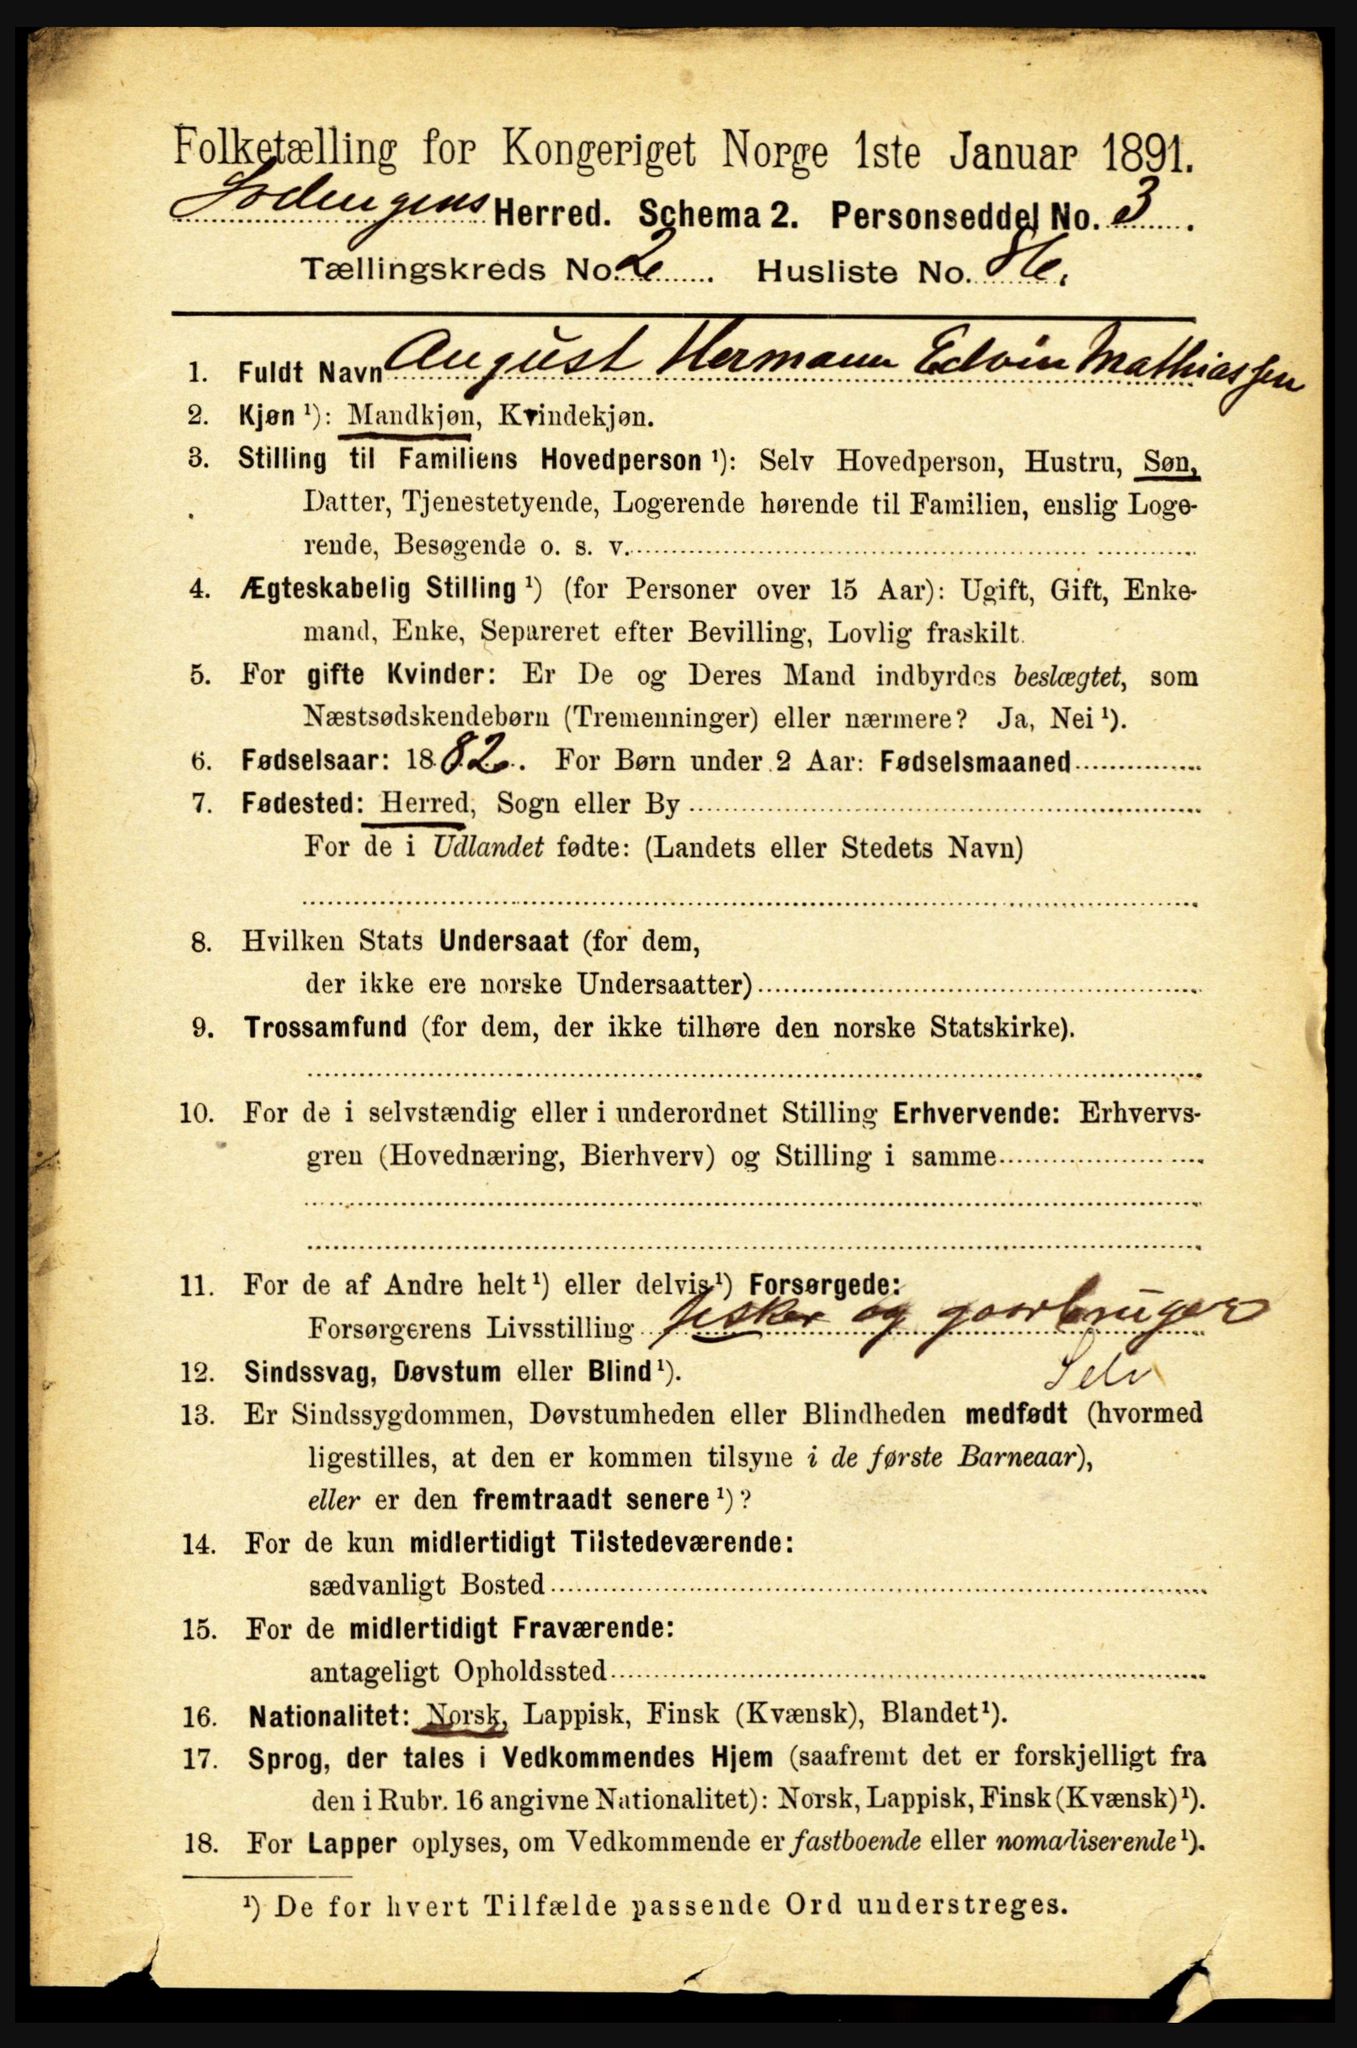 Folketælling for Kongeriget Norge 1ste Januar 1891.
Lodingens Herred. Schema 2. Personseddel No. 3.
Tællingskreds No. 2. Husliste No.
1. Fuldt Navn August Hermann Edvin Mathiassen
2. Kjøn ¹): Mandkjøn, Kvindekjøn.
3. Stilling til Familiens Hovedperson ¹): Selv Hovedperson, Hustru, Søn,
Datter, Tjenestetyende, Logerende hørende til Familien, enslig Loge-
rende, Besøgende o. s. v.
4. Ægteskabelig Stilling ¹) (for Personer over 15 Aar): Ugift, Gift, Enke-
mand, Enke, Separeret efter Bevilling, Lovlig fraskilt.
5. For gifte Kvinder: Er De og Deres Mand indbyrdes beslægtet, som
Næstsødskendebørn (Tremenninger) eller nærmere? Ja, Nei ¹).
6. Fødselsaar: 1882. For Børn under 2 Aar: Fødselsmaaned
7. Fødested: Herred, Sogn eller By
For de i Udlandet fødte: (Landets eller Stedets Navn)
8. Hvilken Stats Undersaat (for dem,
der ikke ere norske Undersaatter)
9. Trossamfund (for dem, der ikke tilhøre den norske Statskirke).
10. For de i selvstændig eller i underordnet Stilling Erhvervende: Erhvervs-
gren (Hovednæring, Bierhverv) og Stilling i samme
11. For de af Andre helt ¹) eller delvis ¹) Forsørgede:
Forsørgerens Livsstilling fisker og gaarbruger
12. Sindssvag, Døvstum eller Blind ¹). Selv
13. Er Sindssygdommen, Døvstumheden eller Blindheden medfødt (hvormed
ligestilles, at den er kommen tilsyne i de første Barneaar),
eller er den fremtraadt senere ¹)?
14. For de kun midlertidigt Tilstedeværende:
sædvanligt Bosted
15. For de midlertidigt Fraværende:
antageligt Opholdssted
16. Nationalitet: Norsk, Lappisk, Finsk (Kvænsk), Blandet ¹).
17. Sprog, der tales i Vedkommendes Hjem (saafremt det er forskjelligt fra
den i Rubr. 16 angivne Nationalitet): Norsk, Lappisk, Finsk (Kvænsk) ¹).
18. For Lapper oplyses, om Vedkommende er fastboende eller nomadiserende ¹).
¹) De for hvert Tilfælde passende Ord understreges.